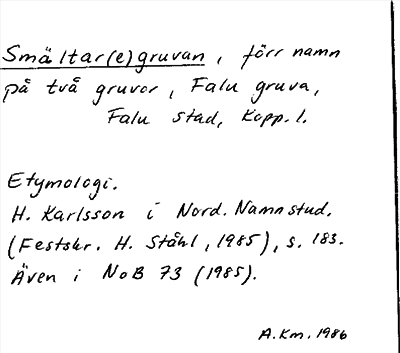 Smältar(e)gruvan, förr namn
på två gruvor, Falu gruva,
Falu stad, Kopp. l.
Etymologi.
H. Karlsson i Nord. Namnstud.
(Festskr. H. Ståhl, 1985), s. 183.
Även i NoB 73 (1985).
A.Km. 1986